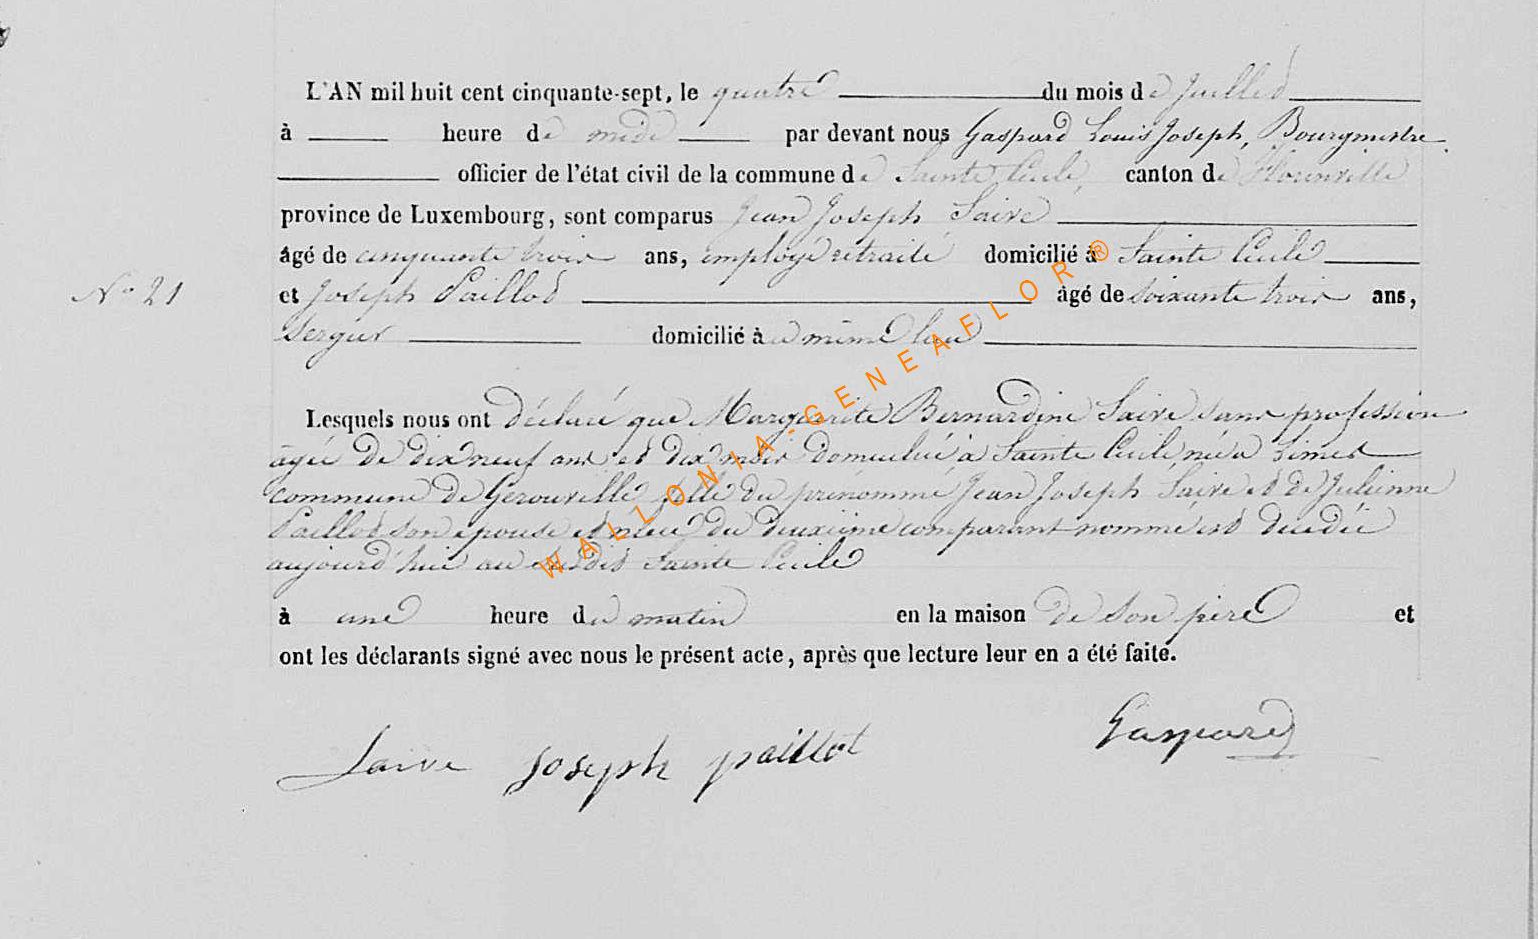 L'AN mil huit cent cinquante-sept, le quatre du mois de Juillet
à heure de midi par devant nous Gaspard Louis Joseph, Bourgmestre
officier de l'état civil de la commune de Sainte Cécile, canton de Florenville
province de Luxembourg, sont comparus Jean Joseph Saive
âgé de cinquante trois ans, employé retraité domicilié à Sainte Cécile
N° 21
et Joseph Paillot âgé de soixante trois ans,
domicilié à même lieu
Lesquels nous ont déclaré que Marguerite Bernardine Saive sans profession
agée de dix neuf ans et dix mois domiciliée à Sainte Cécile née à Limes
commune de Gerouville fille du prénommé Jean Joseph Saive et de Julienne
Paillot son épouse et nièce du deuxième comparant nommé est décédée
aujourd'hui au susdit Sainte Cécile
à une heure du matin en la maison de son père et
ont les déclarants signé avec nous le présent acte, après que lecture leur en a été faite.
Saive Joseph paillot Gaspard
WALLONIA-GENEAFLOR®